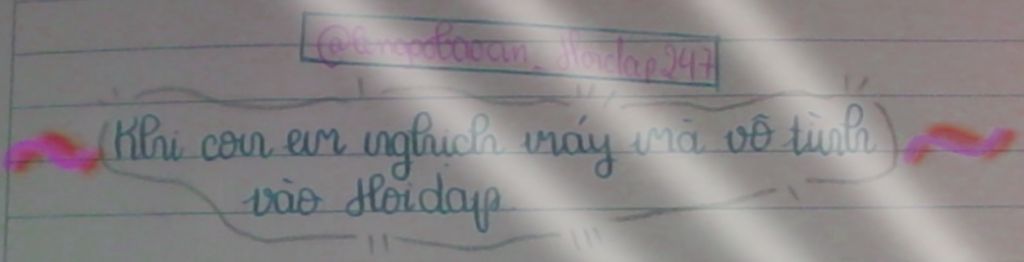 Hoidap247
Khi con em nghịch máy mà vô tình
vào Hoidap